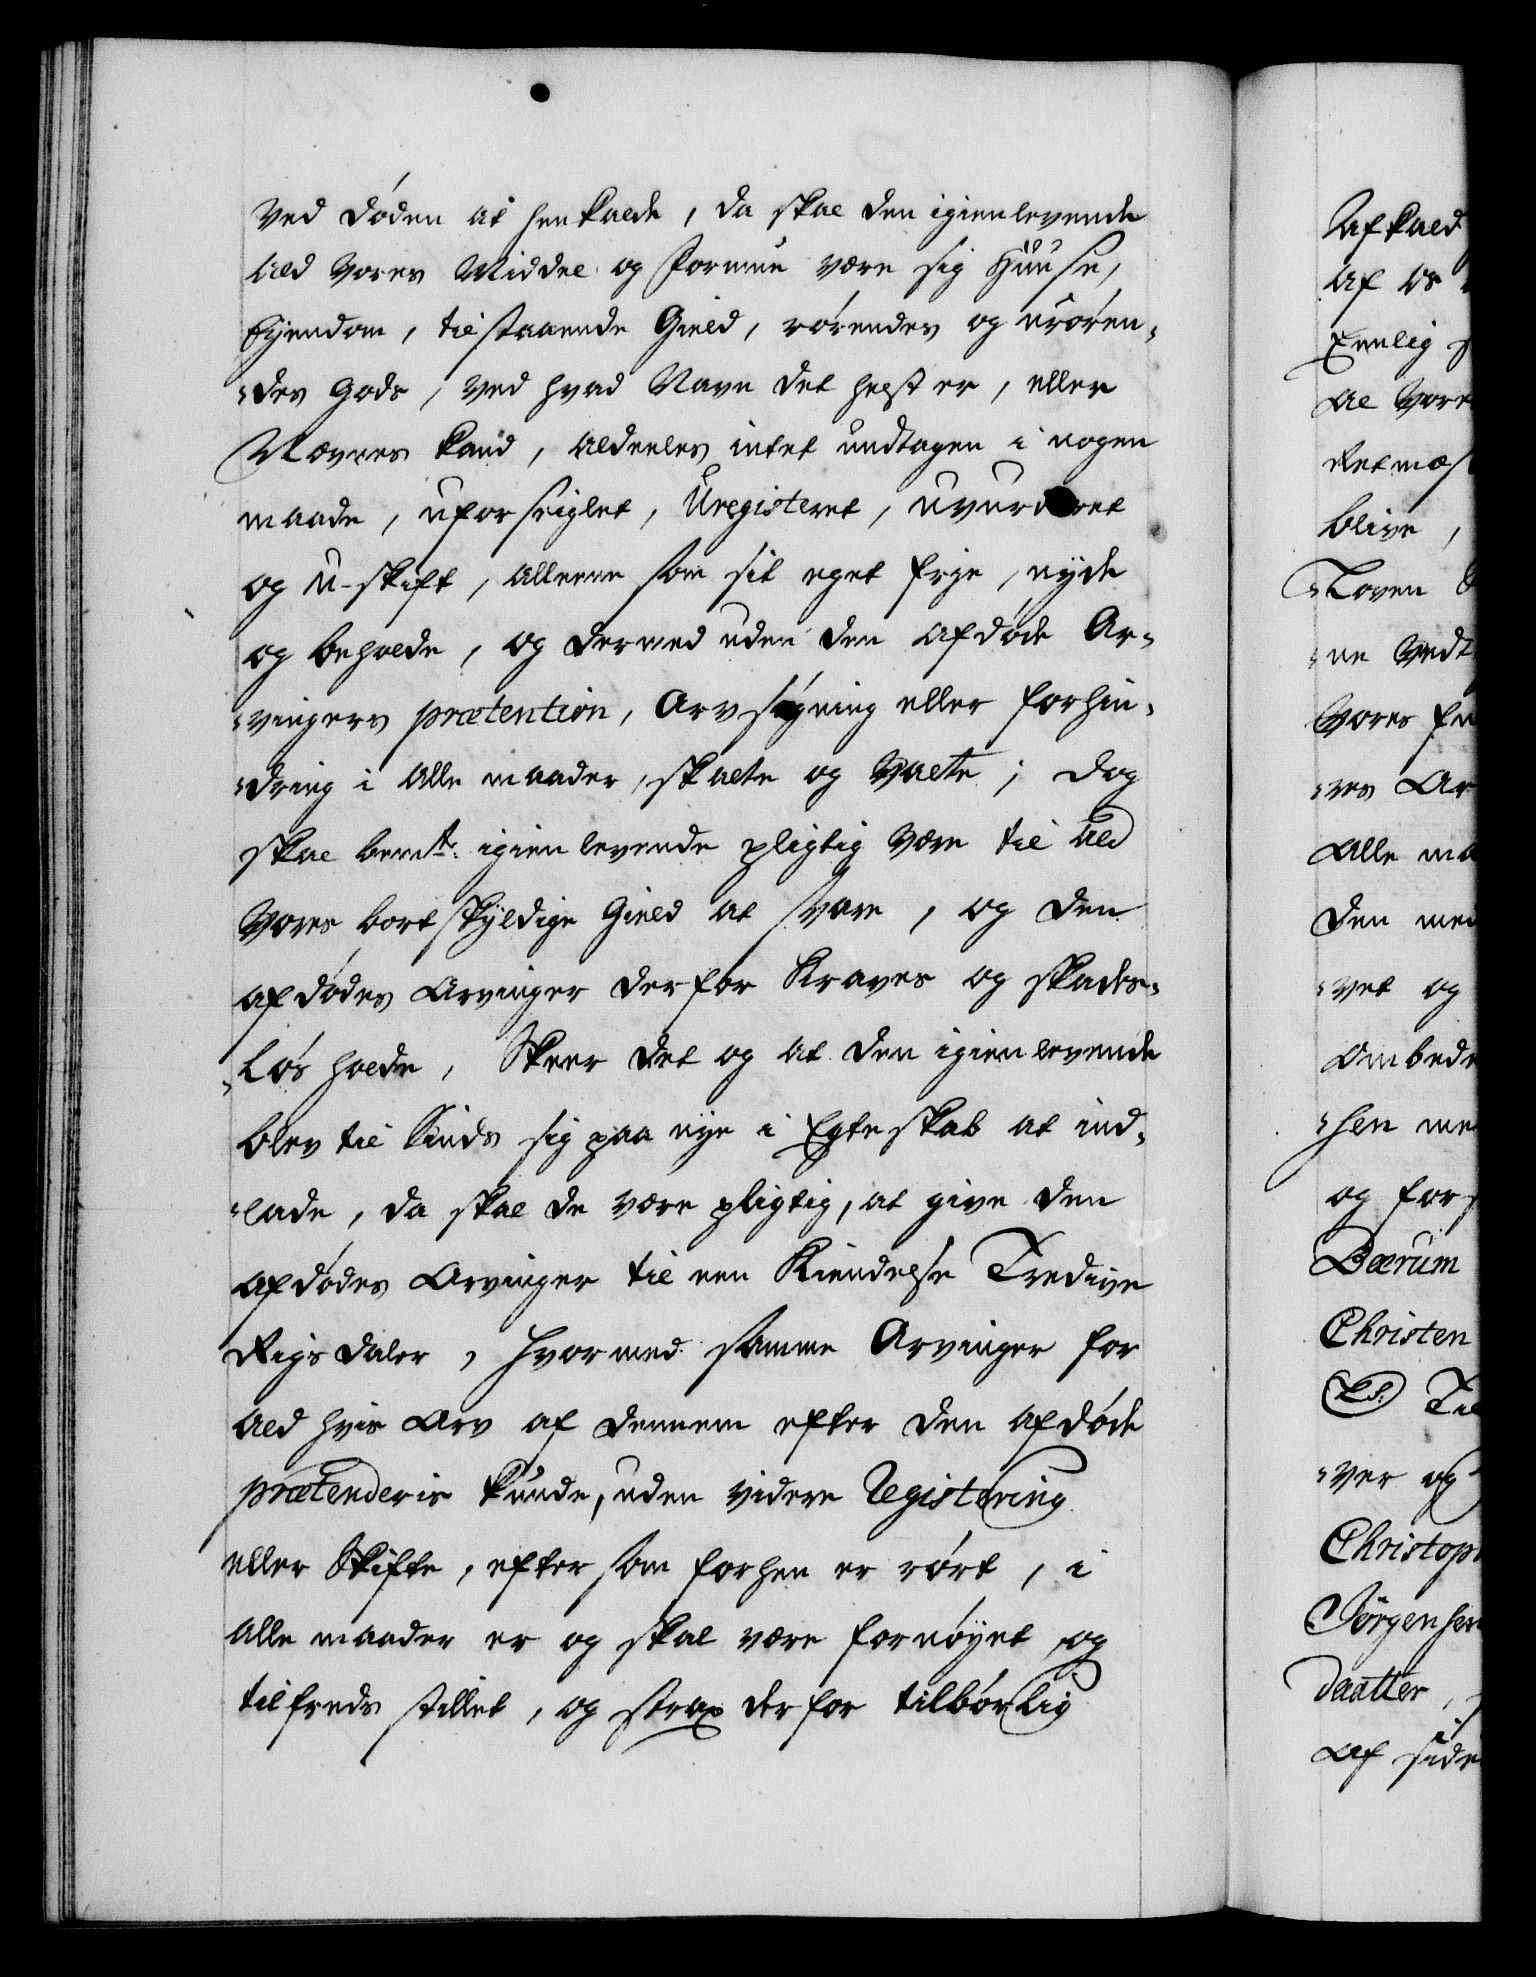 ved Døden at henkalde, da skal den igienlevende
ald vores Middel og Formue være sig Huuse,
Ejendom, tilstaaende Gield, rørendes og urøren-
-des Gods, ved hvad Navn det helst er, eller
Nævnes kand, aldeeles intet undtagen i nogen
maade, uforseiglet, Uregisteret, uvurderet
og U-skift, alleene som sit eget frje, nyde
og beholde, og dermed uden den afdøde Ar-
-vingers prætention, Arvsøgning eller forhin-
-dring i alle maader, skalte og Valte; dog
skal bemte: igienlevende pligtig være til ald
vores bortskyldige Gield at svare, og den
afdødes Arvinger derfor Kraves og skades-
-løs holde, Skeer det og at den igienlevende
blev til Sinds sig paa nye i Egteskab at ind-
-lade, da skal de være pligtig, at give den
afdødes Arvinger til een Kiendelse Tredive
Rigsdaler, hvormed samme Arvinger for
ald hvis Arv af dennem efter den afdøde
prætenderis kunde, uden videre Registering
eller Skifte, eftersom forhen er rørt, i
alle maader er og skal være fornøyet og
tilfredsstillet, og strax derfor tilbørlig
Afkald
af os
Eenlig
al Vore
Retmæs
blive,
-Loven
-ne Vedt
Vores
-res Ar
Alle ma
den med
-vet og
ombede
-sen me
og fors
Bærum
Christen
LS. Til
-ver og
Christop
Jørgensen
daatter,
af side